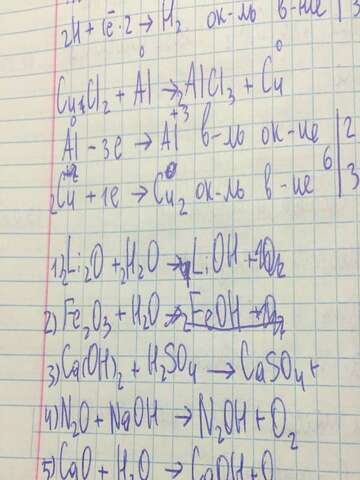 2H + 1ē·2 → H₂ ок-ль в-ние | 3
0 0
Cu₁Cl₂ + Al → ₂AlCl₃ + Cu
0 +3
Al - 3e → Al в-ль ок-ние | 2
+2 0 6
₂Cu + 1e → Cu₂ ок-ль в-ние | 3
1) ₂Li₂O + ₂H₂O → ₄LiOH + O₂
2) Fe₂O₃ + H₂O → ₂FeOH + O₂
3) Ca(OH)₂ + H₂SO₄ → CaSO₄ +
4) N₂O + NaOH → N₂OH + O₂
5) CaO + H₂O → CaOH + O